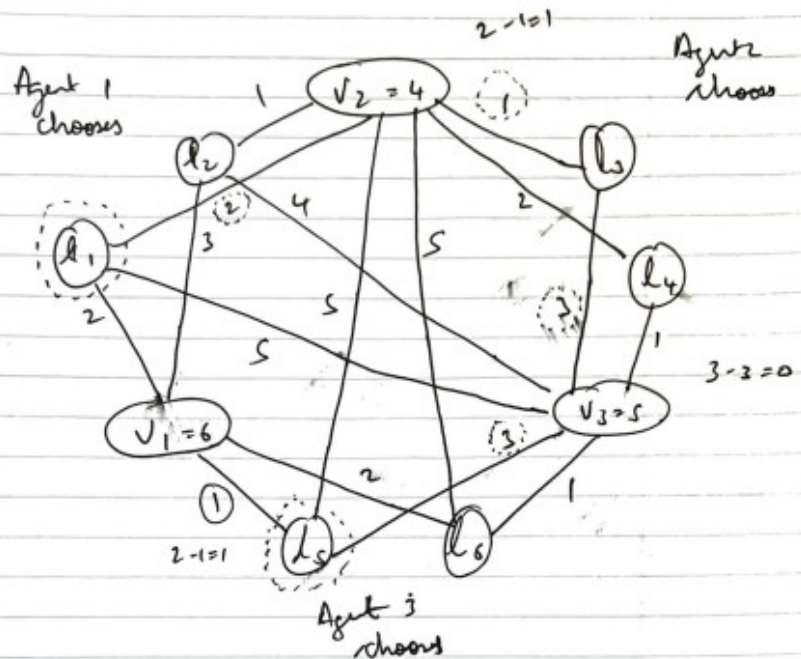 2-1=1
Agent 1
chooses
Agent 2
chooses
1
V2 = 4
1
l2
l3
2
4
2
l1
3
5
5
3
l4
2
5
1
3-3=0
V1 = 6
V3 = 5
3
1
2
1
2-1=1
l5
l6
Agent 3
chooses